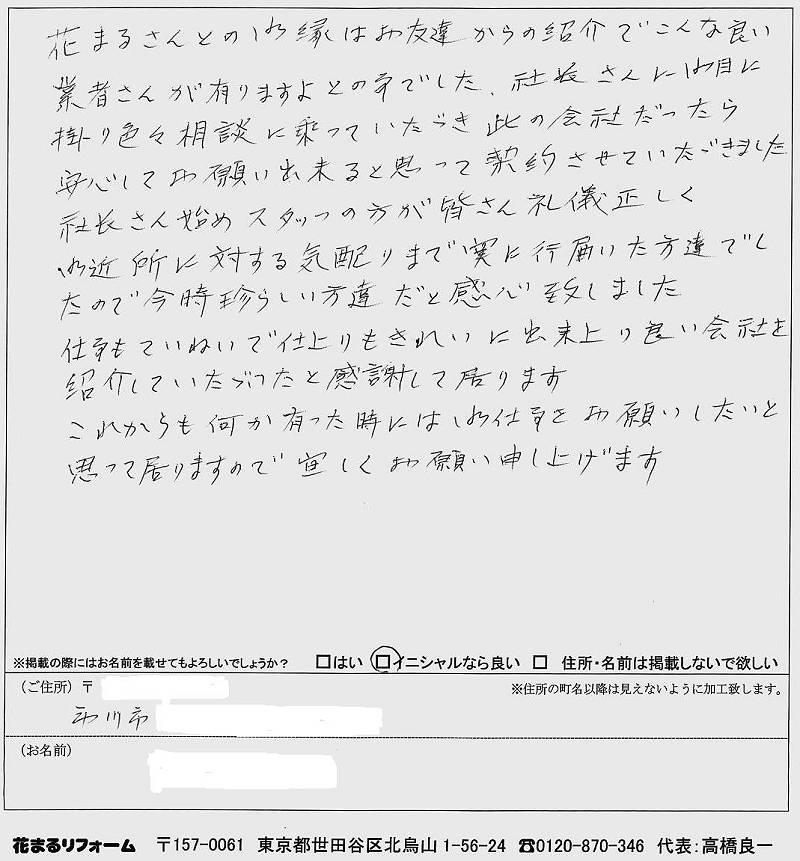 花まるさんとの御縁はお友達からの紹介でこんな良い
業者さんが有りますよとの事でした、社長さんに御目に
掛り色々相談に乗っていただき此の会社だったら
安心してお願い出来ると思って契約させていただきました
社長さん始めスタッフの方が皆さん礼儀正しく
御近所に対する気配りまで実に行届いた方達でし
たので今時珍らしい方達だと感心致しました
仕事もていねいで仕上りもきれいに出来上り良い会社を
紹介していただいたと感謝して居ります
これからも何か有った時には御仕事をお願いしたいと
思って居りますので宜しくお願い申し上げます
※掲載の際にはお名前を載せてもよろしいでしょうか? □はい □イニシャルなら良い □ 住所・名前は掲載しないで欲しい
(ご住所) 〒 ※住所の町名以降は見えないように加工致します。
市川市
(お名前)
花まるリフォーム 〒157-0061 東京都世田谷区北烏山1-56-24 ☎0120-870-346 代表:高橋良一